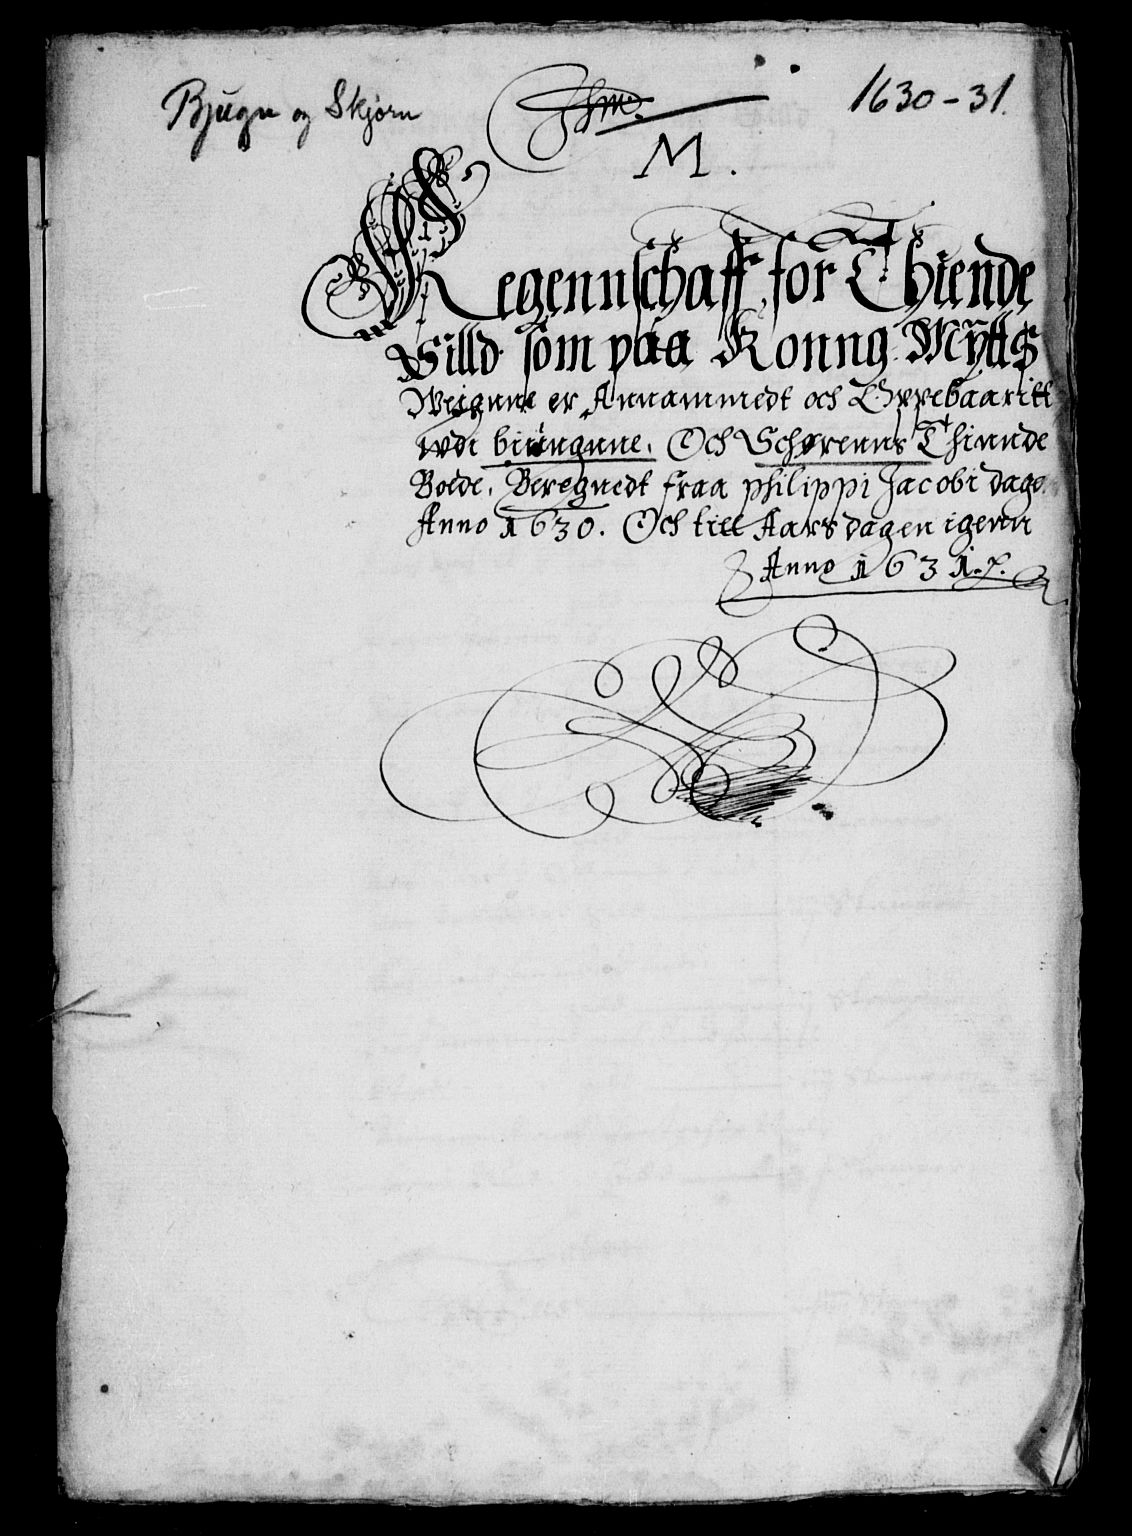 Bjugn og Skjørn
1630-31.
M.
Regennschaff for Thiende
Silld som paa Konng: Maytts
Weignne er Annammedt och Oppebaaritt
wdi biungnne. Och Schørenns Thinnde
Boede. Beregnedt fraa philippi Jacobi dags
Anno 1630. Och till Aarsdagen igenn
Anno 1631.